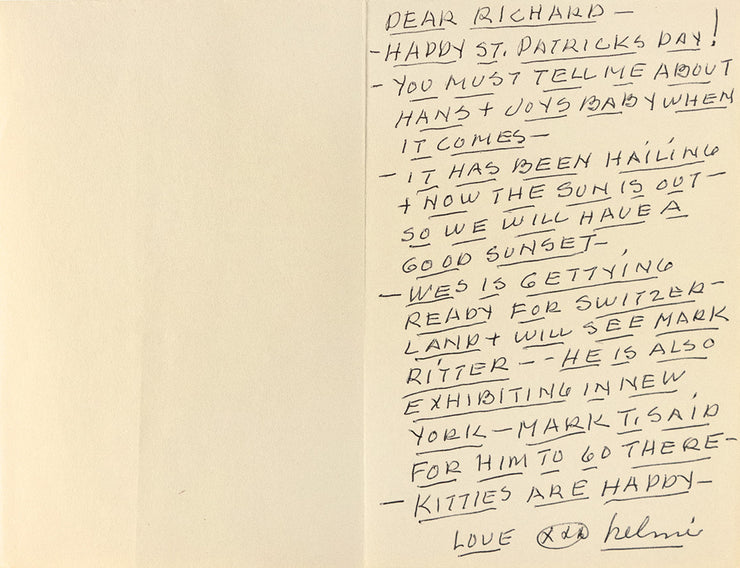 DEAR RICHARD —
- HAPPY ST. PATRICKS DAY!
- YOU MUST TELL ME ABOUT
HANS + JOYS BABY WHEN
IT COMES —
- IT HAS BEEN HAILING
+ NOW THE SUN IS OUT —
SO WE WILL HAVE A
GOOD SUNSET —
- WES IS GETTYING
READY FOR SWITZER-
LAND + WILL SEE MARK
RITTER -- HE IS ALSO
EXHIBITING IN NEW
YORK — MARK T. SAID
FOR HIM TO GO THERE —
- KITTIES ARE HAPPY —
LOVE XXX helmi